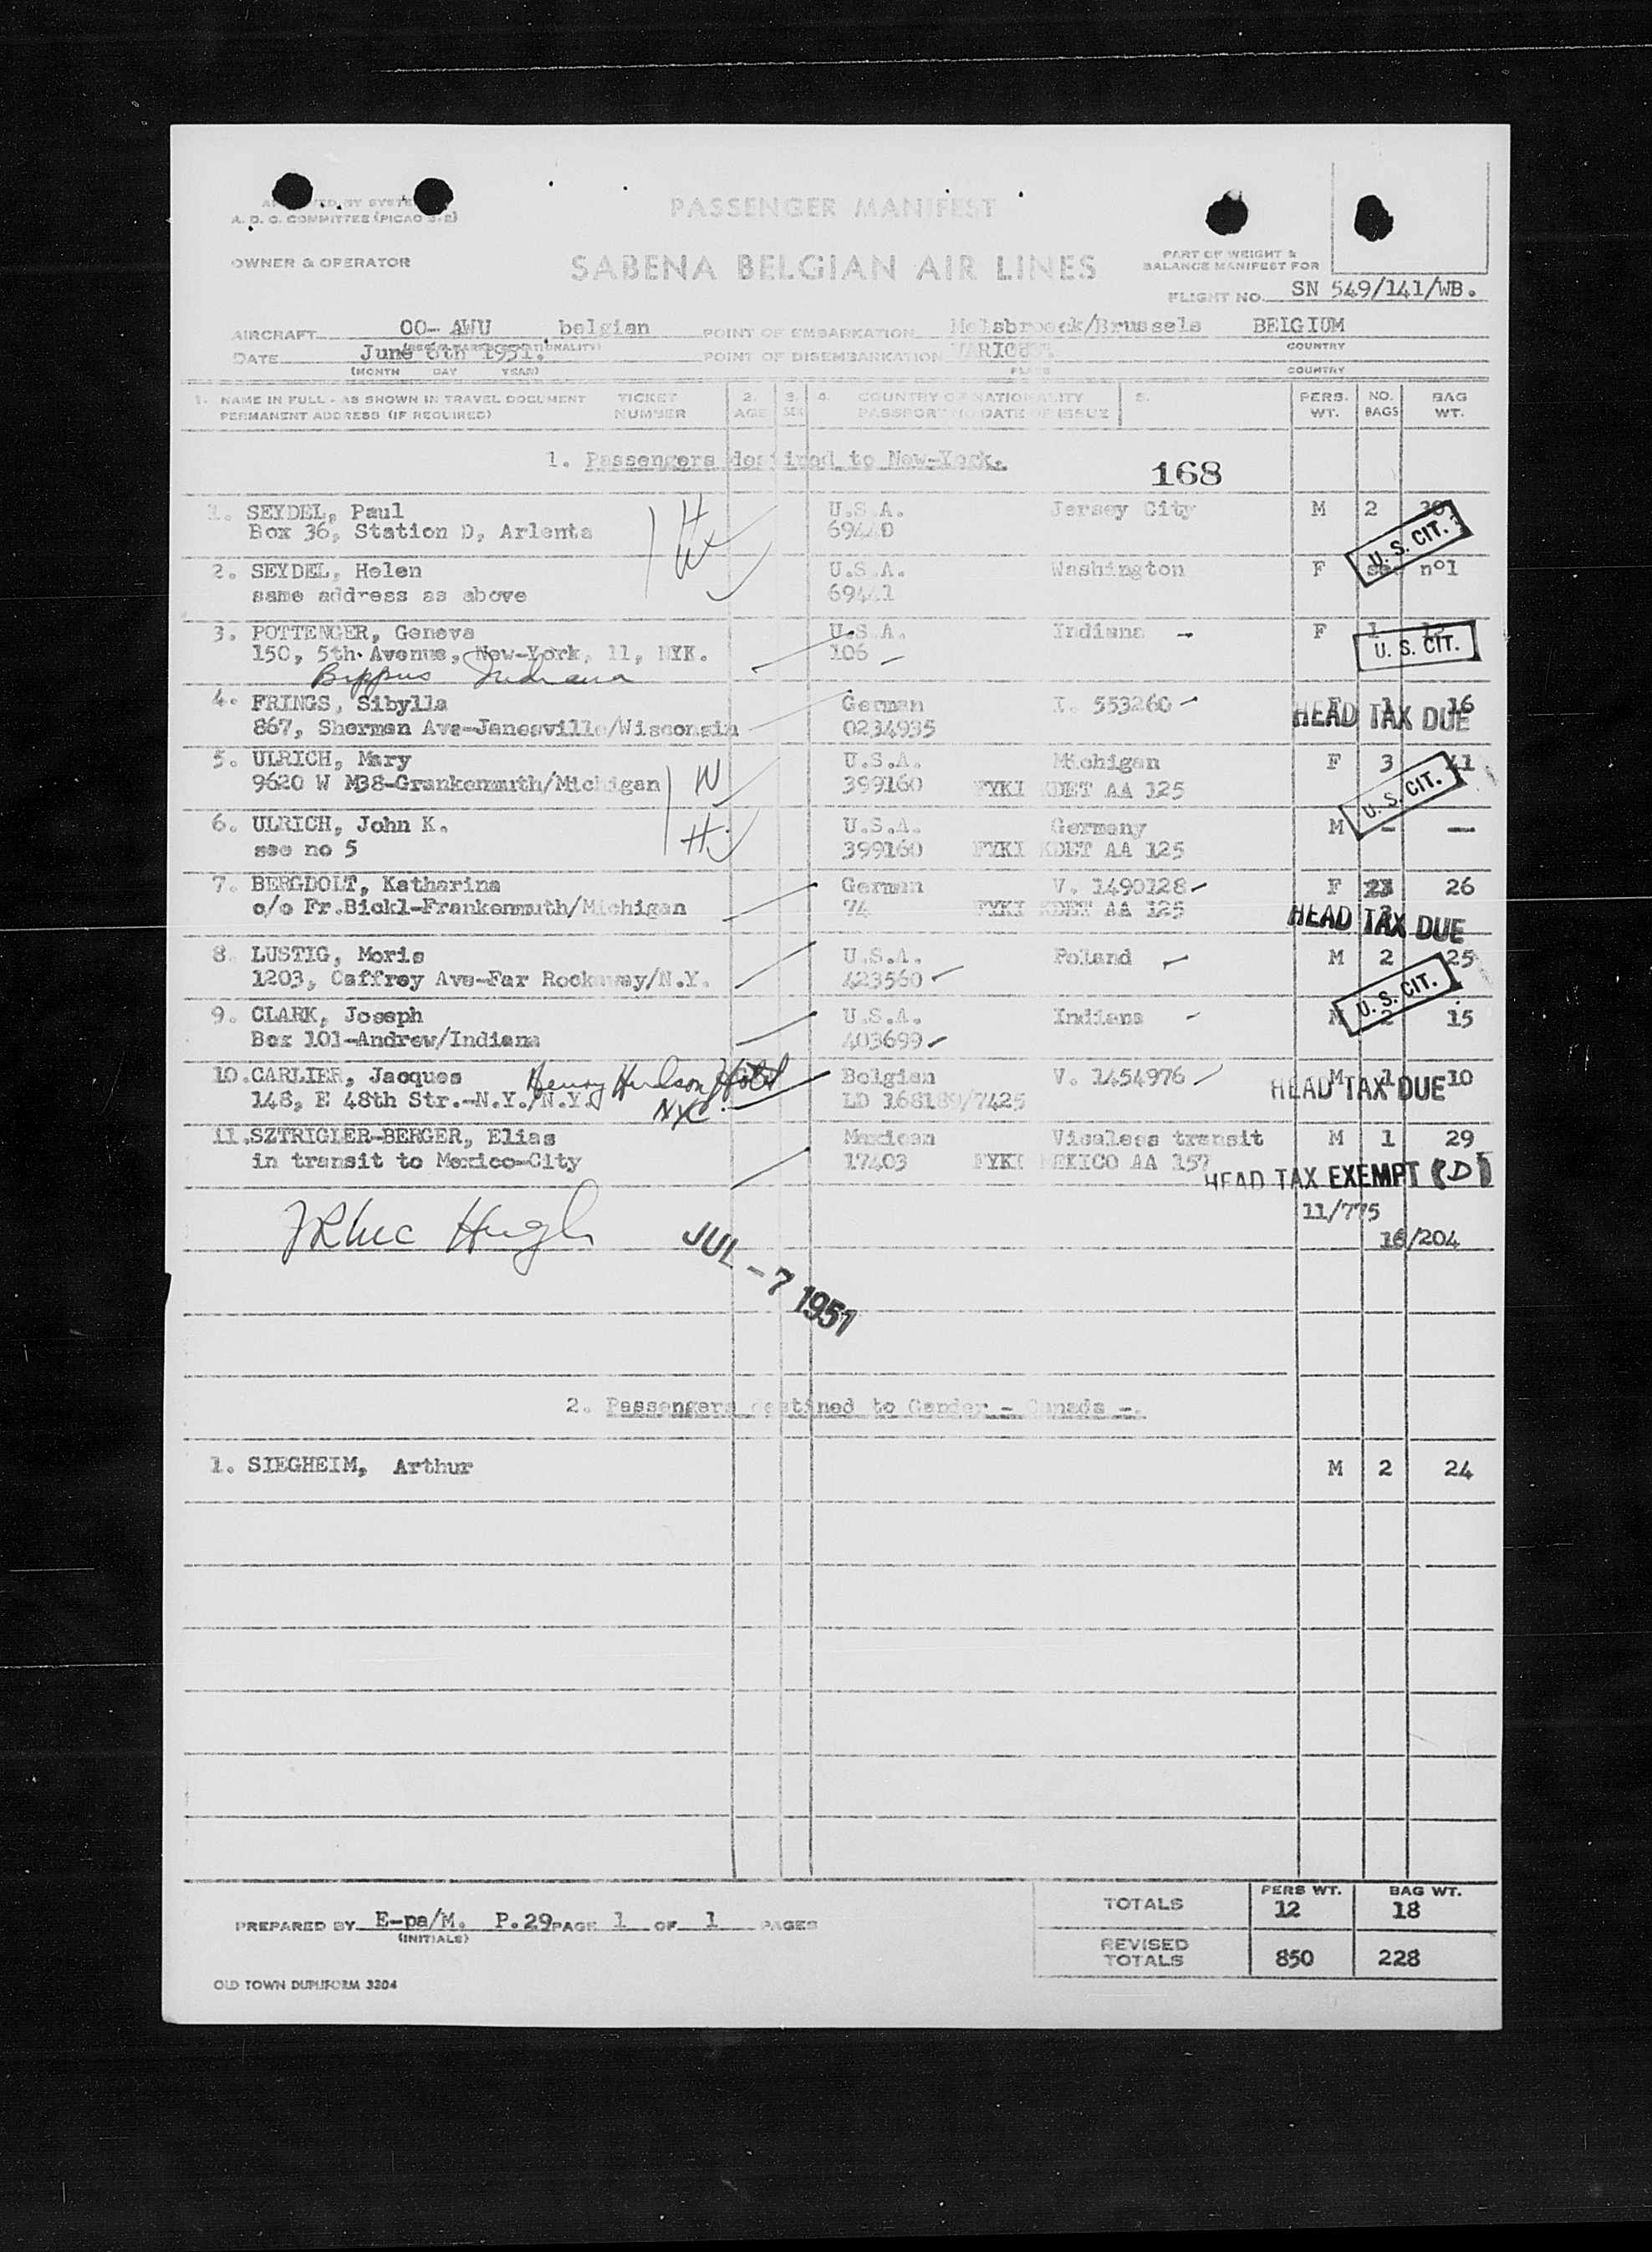 A. D. C. COMMITTEE (PICAO
PASSENGER MANIFEST
OWNER & OPERATOR
SABENA BELGIAN AIR LINES
PART OF WEIGHT &
BALANCE MANIFEST FOR
FLIGHT NO. SN 549/141/WB.
AIRCRAFT OO- AWU belgian POINT OF EMBARKATION Melsbroeck/Brussels BELGIUM
COUNTRY
DATE June 6th 1951. POINT OF DISEMBARKATION
(MONTH DAY YEAR) PLACE COUNTRY
1. NAME IN FULL - AS SHOWN IN TRAVEL DOCUMENT TICKET 2. 3. 4. COUNTRY OF NATIONALITY 5. PERS. NO. BAG
PERMANENT ADDRESS (IF REQUIRED) NUMBER AGE SEX PASSPORT NO DATE OF ISSUE WT. BAGS WT.
1. Passengers destined to New-York.
168
1. SEYDEL, Paul U.S.A. Jersey City M 2
Box 36, Station D, Arlenta
H
W
U. S. CIT.
2. SEYDEL, Helen U.S.A. Washington F n°1
same address as above
3. POTTENGER, Geneva U.S.A. Indiana F 1
150, 5th Avenue, New-York, 11, NYK. 106
U. S. CIT.
Bippus Indiana
4. FRINGS, Sibylla German I. 553260 F 1 16
867, Sherman Ave-Janesville/Wisconsin 0234935
HEAD TAX DUE
5. ULRICH, Mary U.S.A. Michigan F 3 41
9620 W M38-Grankenmuth/Michigan W 399160 FYKI KDET AA 125
U. S. CIT.
6. ULRICH, John K. U.S.A. Germany M - -
see no 5 H 399160 FYKI KDET AA 125
7. BERGDOLT, Katharina German V. 1490128 F 26
c/o Fr.Bickl-Frankenmuth/Michigan 74 FYKI KDET AA 125
HEAD TAX DUE
8. LUSTIG, Moris U.S.A. Poland M 2 25
1203, Caffrey Ave-Far Rockaway/N.Y. 423560
U. S. CIT.
9. CLARK, Joseph U.S.A. Indiana M 2 15
Box 101-Andrew/Indiana 403699
10. CARLIER, Jacques Henry Hudson Hotel Belgian V. 1454976 M 1 10
148, E 48th Str.-N.Y./N.Y. NYC LD 168189/7425
HEAD TAX DUE
11. SZTRIGLER-BERGER, Elias Mexican Visaless transit M 1 29
in transit to Mexico-City 17403 FYKI MEXICO AA 157
HEAD TAX EXEMPT (D)
11/775
16/204
JUL - 7 1951
2. Passengers destined to Gander - Canada -.
1. SIEGHEIM, Arthur M 2 24
PERS WT. BAG WT.
TOTALS 12 18
PREPARED BY E-pa/M. P.29 PAGE 1 OF 1 PAGES
(INITIALS)
REVISED
TOTALS 850 228
OLD TOWN DUPLIFORM 3304